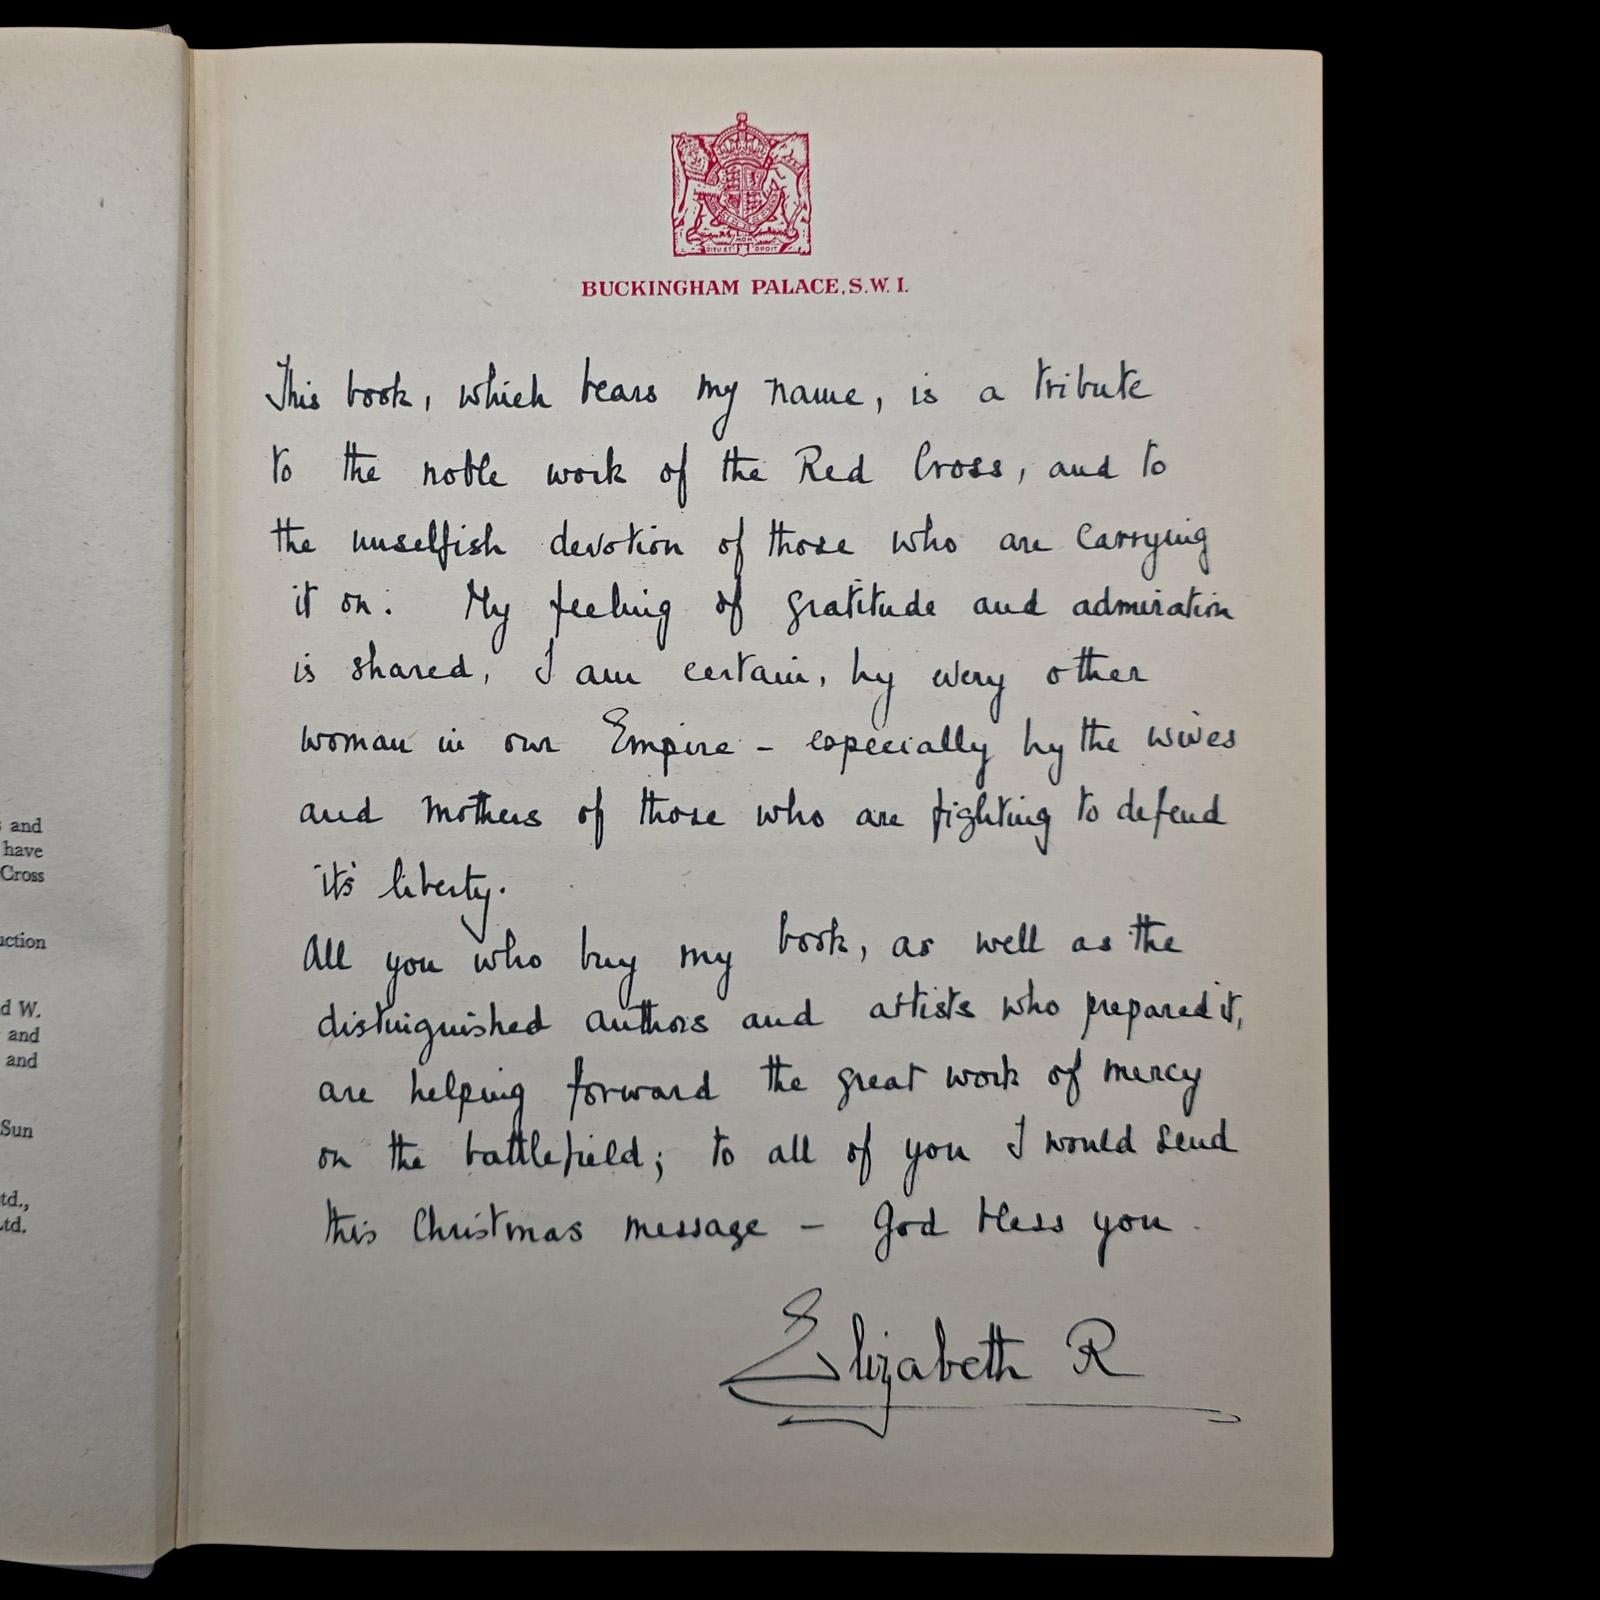 and
have
Cross
d W.
and
and
Sun
td.,
Ltd.
DIEU ET MON DROIT
BUCKINGHAM PALACE, S.W. I.
This book, which bears my name, is a tribute
to the noble work of the Red Cross, and to
the unselfish devotion of those who are carrying
it on. My feeling of gratitude and admiration
is shared, I am certain, by every other
woman in our Empire - especially by the wives
and mothers of those who are fighting to defend
it's liberty.
All you who buy my book, as well as the
distinguished authors and artists who prepared it,
are helping forward the great work of mercy
on the battlefield; to all of you I would send
this Christmas message - God bless you.
Elizabeth R